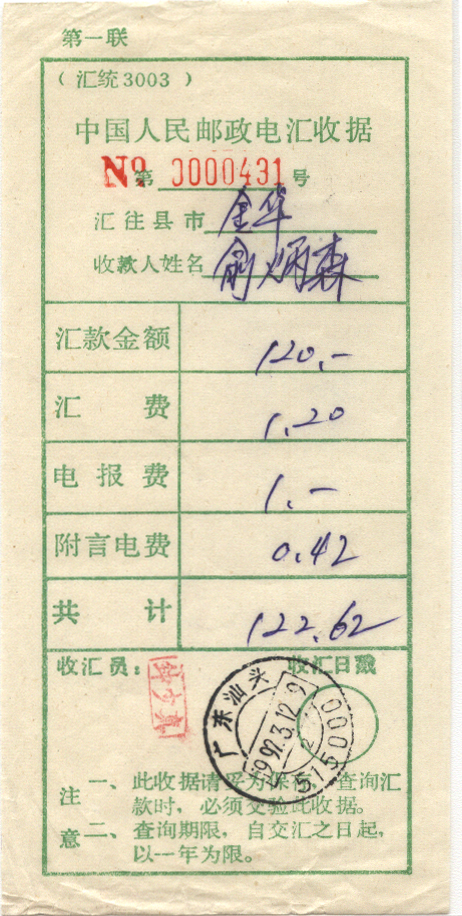 第一联
（汇统3003）
中国人民邮政电汇收据
No 第 0000431 号
汇往县市 金华
收款人姓名 俞炳森
汇款金额 120.-
汇费 1.20
电报费 1.-
附言电费 0.42
共计 122.62
收汇员： 收汇日戳
广东汕头
1992.3.12.9
515000
注意
一、此收据请妥为保存，查询汇
款时，必须交验此收据。
二、查询期限，自交汇之日起，
以一年为限。